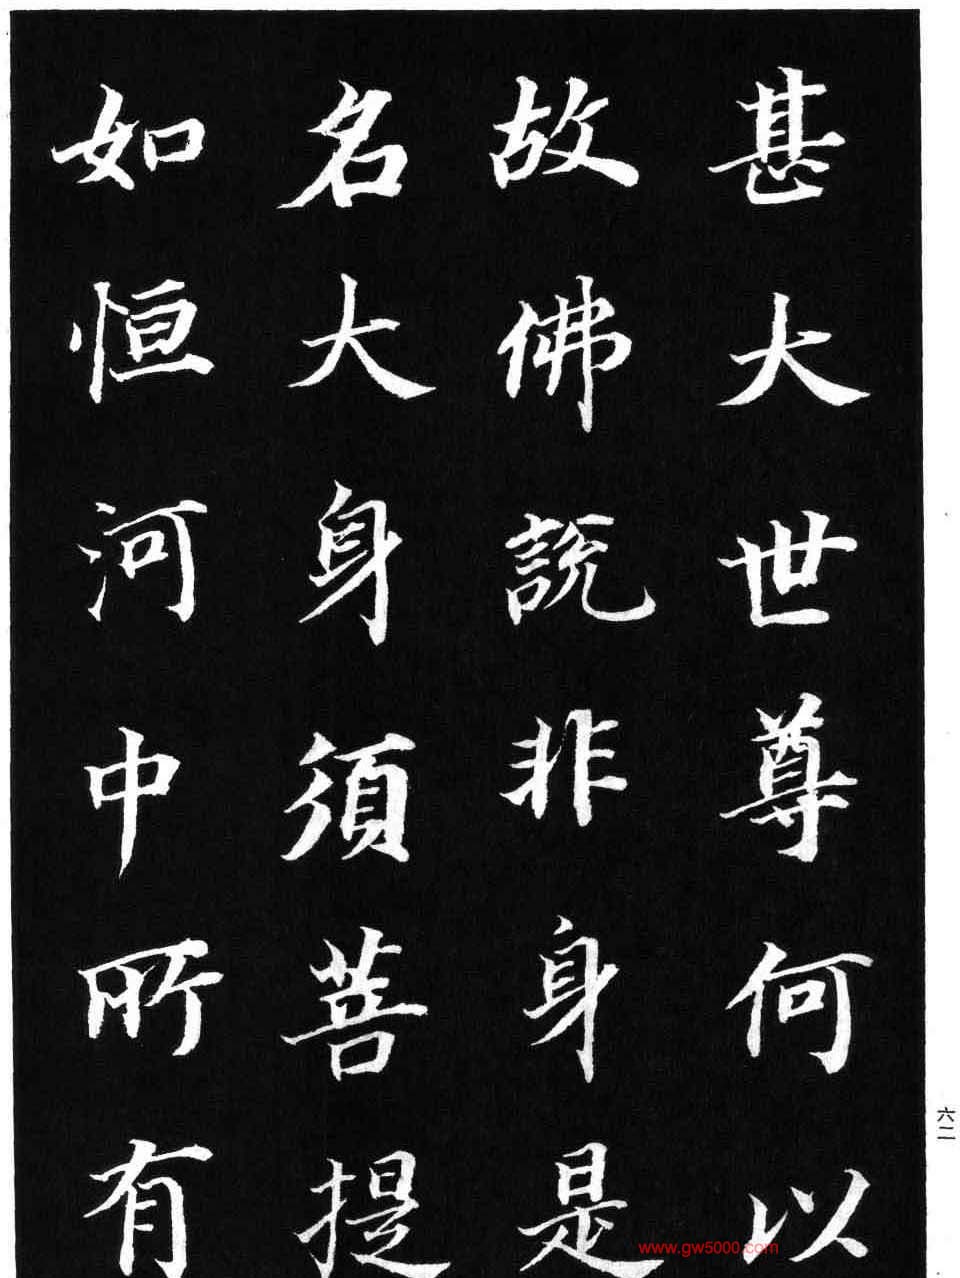 甚大世尊何以
故佛說非身是
名大身須菩提
如恒河中所有
六二
www.gw5000.com